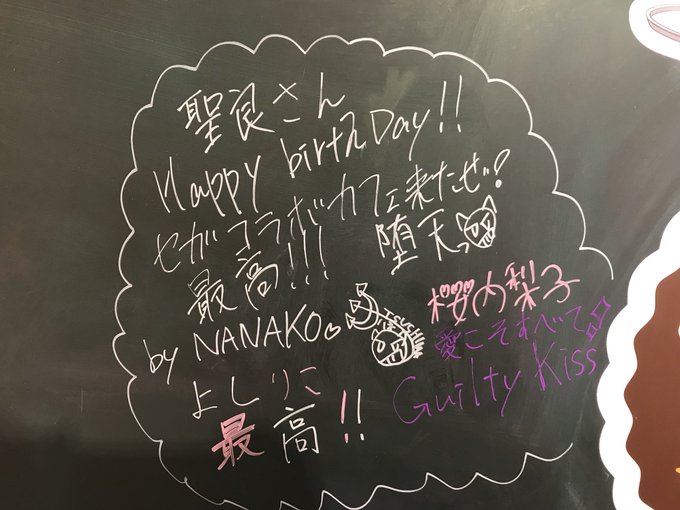 聖良さん
Happy birthDay!!
セガコラボカフェ来たぜ!
最高!!!
堕天っ
by NANAKO
桜内梨子
愛こそすべて
Guilty Kiss
よしりこ
最高!!